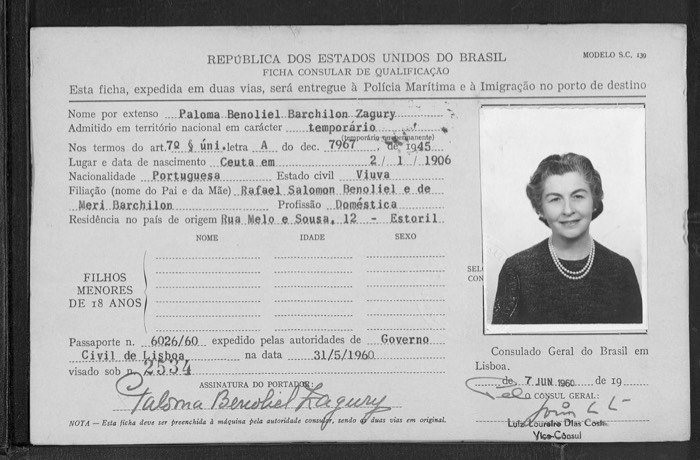 REPÚBLICA DOS ESTADOS UNIDOS DO BRASIL
MODELO S.C. 139
FICHA CONSULAR DE QUALIFICAÇÃO
Esta ficha, expedida em duas vias, será entregue à Polícia Marítima e à Imigração no porto de destino
Nome por extenso Paloma Benoliel Barchilon Zagury
Admitido em território nacional em carácter temporário
(temporário ou permanente)
Nos termos do art. 7º § úni. letra A do dec. 7967 de 1945
Lugar e data de nascimento Ceuta em 2 / 1 / 1906
Nacionalidade Portuguesa Estado civil Viuva
Filiação (nome do Pai e da Mãe) Rafael Salomon Benoliel e de
Meri Barchilon Profissão Doméstica
Residência no país de origem Rua Melo e Sousa, 12 - Estoril
NOME IDADE SEXO
FILHOS
MENORES
DE 18 ANOS
SEL
CON
Passaporte n. 6026/60 expedido pelas autoridades de Governo
Civil de Lisboa na data 31/5/1960
visado sob n. 2534
ASSINATURA DO PORTADOR:
Paloma Benoliel Zagury
NOTA — Esta ficha deve ser preenchida à máquina pela autoridade consular, sendo as duas vias em original.
Consulado Geral do Brasil em
Lisboa.
de 7 JUN 1960 de 19
Pelo O CONSUL GERAL:
Luiz Loureiro Dias Costa
Vice-Cônsul